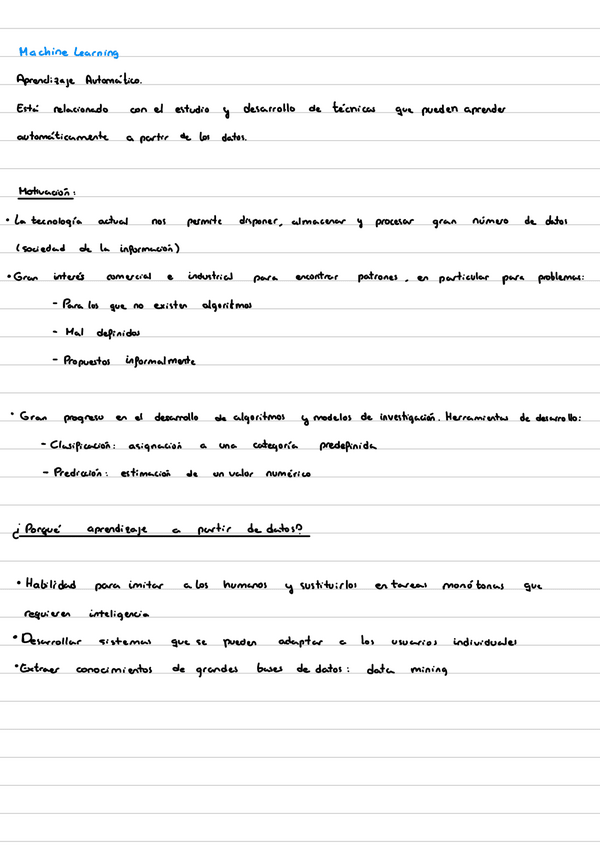 Machine Learning
Aprendizaje Automático.
Está relacionado con el estudio y desarrollo de técnicas que pueden aprender
automáticamente a partir de los datos.
Motivación:
• La tecnología actual nos permite disponer, almacenar y procesar gran número de datos
(sociedad de la información)
• Gran interés comercial e industrial para encontrar patrones, en particular para problemas:
- Para los que no existen algoritmos
- Mal definidos
- Propuestos informalmente
• Gran progreso en el desarrollo de algoritmos y modelos de investigación. Herramientas de desarrollo:
- Clasificación: asignación a una categoría predefinida
- Predicción: estimación de un valor numérico
¿Porqué aprendizaje a partir de datos?
• Habilidad para imitar a los humanos y sustituirlos en tareas monótonas que
requieren inteligencia
• Desarrollar sistemas que se pueden adaptar a los usuarios individuales
• Extraer conocimientos de grandes bases de datos: data mining